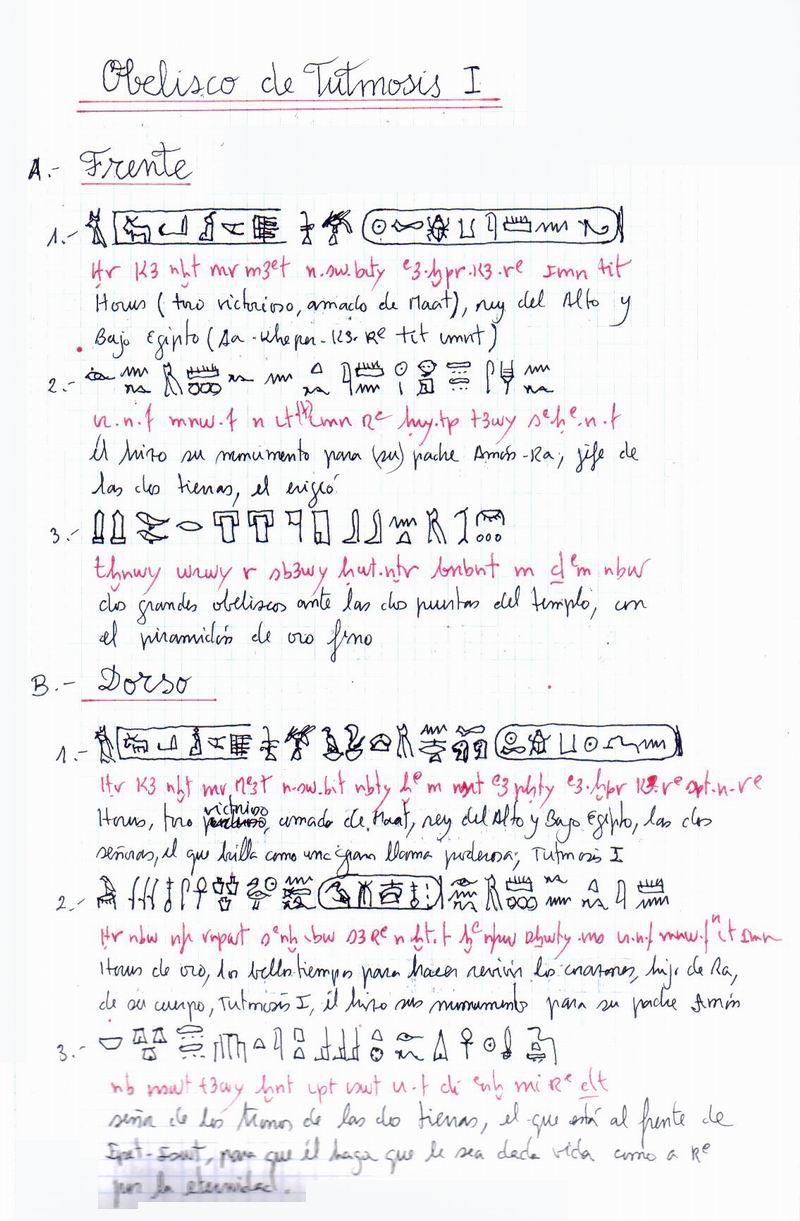 Obelisco de Tutmosis I
A.- Frente
1.-
Hr k3 nḫt mr m3ꜥt n.sw.bity ꜥ3.ḫpr.k3.rꜥ Imn tit
Horus (toro victorioso, amado de Maat), rey del Alto y
Bajo Egipto (Aa-Kheper-K3-Rᵉ tit imnt)
2.-
ir.n.f mnw.f n it imn Rꜥ ḥry.tp t3wy sꜥḥꜥ.n.f
él hizo su monumento para (su) padre Amón-Ra, jefe de
las dos tierras, el erigió
3.-
tḫnwy wrwy r sb3wy ḥwt.nṯr bnbnt m ḏꜥm nbw
dos grandes obeliscos ante las dos puertas del templo, con
el piramidión de oro fino
B.- Dorso
1.-
Hr k3 nḫt mr m3ꜥt n-sw.bit nbty ḫꜥ m nsrt ꜥ3 pḥty ꜥ3.ḫpr k3.rꜥ stpt.n-rꜥ
Horus, toro victorioso, amado de Maat, rey del Alto y Bajo Egipto, las dos
señoras, el que brilla como una gran llama poderosa, Tutmosis I
2.-
Hr nbw nfr rnpwt sꜥnḫ ibw s3 Rꜥ n ḫt.f ḫꜥ nfrw ḏḥwty.ms ir.n.f mnw.f n it Imn
Horus de oro, los bellos tiempos para hacer revivir los corazones, hijo de Ra,
de su cuerpo, Tutmosis I, él hizo sus monumento para su padre Amón
3.-
nb nswt t3wy ḫnt ipt iswt ir.f di ꜥnḫ mi Rꜥ ḏt
señor de los tronos de las dos tierras, el que está al frente de
Ipet-Isut, para que él haga que le sea dada vida como a Rᵉ
por la eternidad.